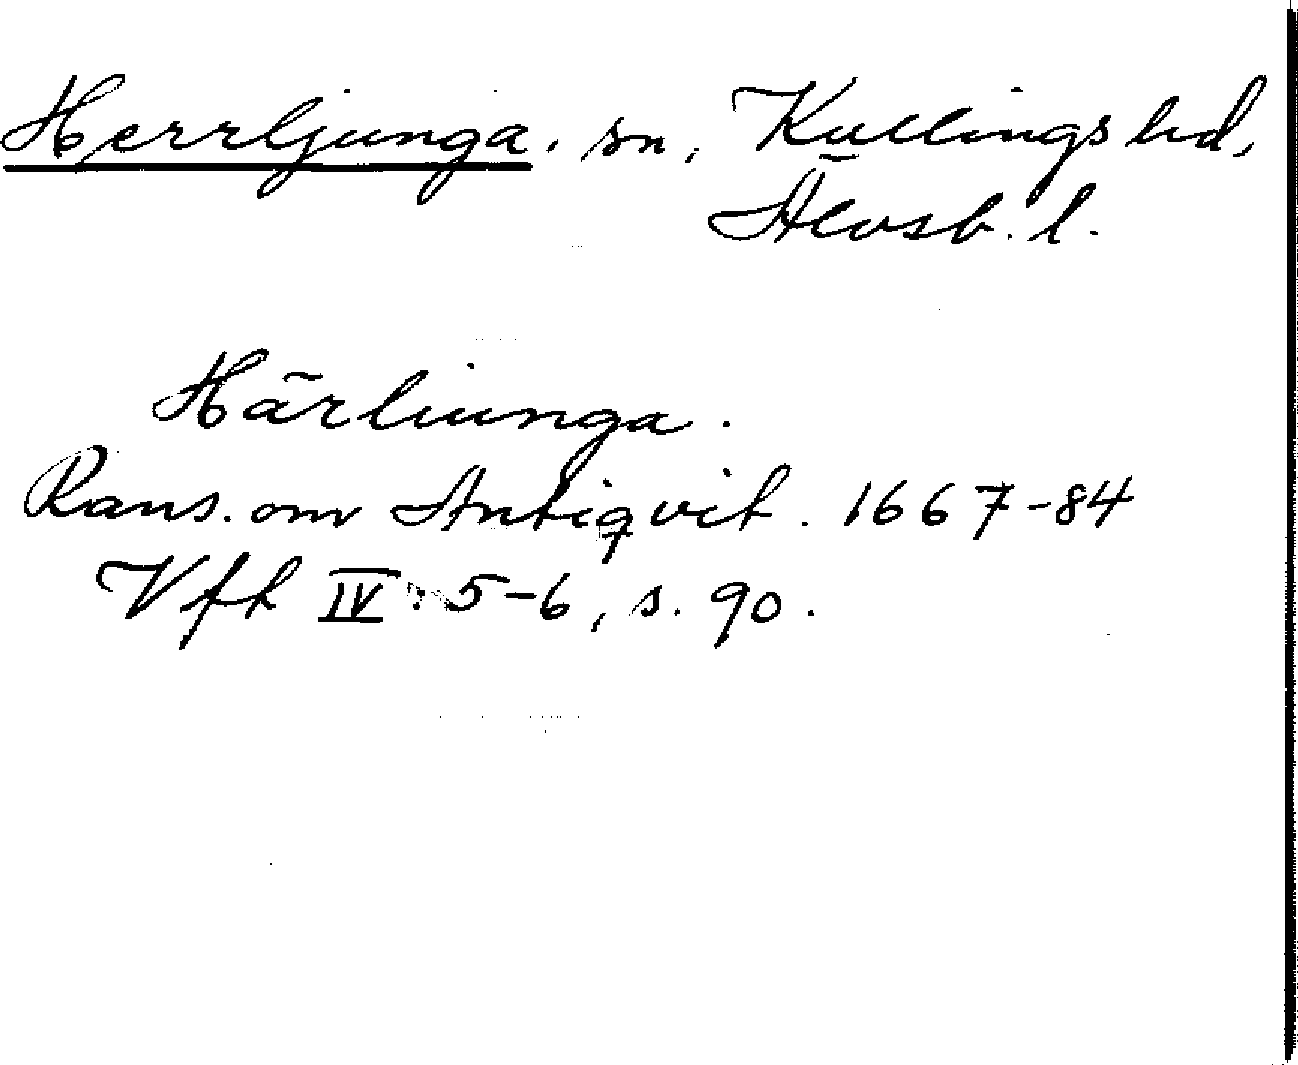 Herrljunga. sn, Kullings hd,
Älvsb. l.
Härliunga.
Rans. om Antiqvit. 1667-84
Vfk IV: 5-6, s. 90.